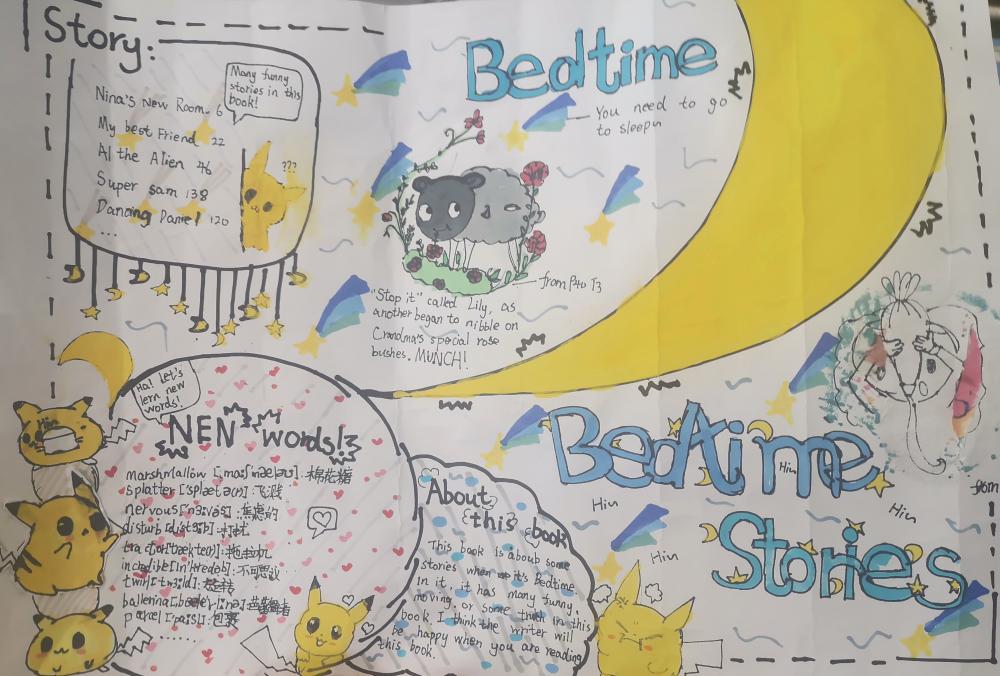 Story:
Many funny
stories in this
book!
Nina's New Room. 6
My best Friend 22
Al the Alien 46
Super sam 138
Dancing Daniel 120
...
???
Bedtime
You need to go
to sleep
"Stop it" called Lily, as
another began to nibble on
Grandma's special rose
bushes. MUNCH!
from P4 to
Ha! Let's
lern new
words!
NEN words!
marshmallow 棉花糖
splatter 飞溅
nervous 焦虑的
disturb 打扰
tractor 拖拉机
incredible 不可思议
twirl 旋转
ballerina
parcel 包裹
......
About
this book
This book is aboub some
stories when it's Bedtime
in it, it has many funny,
moving, or some think in this
book. I think the writer will
be happy when you are reading
this book.
Bedtime
Stories
Hiu
Hiu
Hiu
Hiu
from